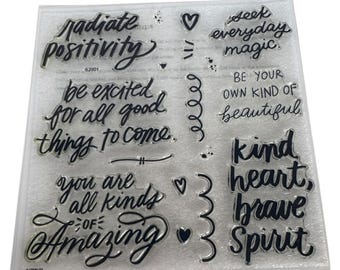 radiate
positivity
be excited
for all good
things to come
you are
all kinds
OF
Amazing
seek
everyday
magic
BE YOUR
OWN KIND OF
beautiful
kind
heart,
brave
Spirit